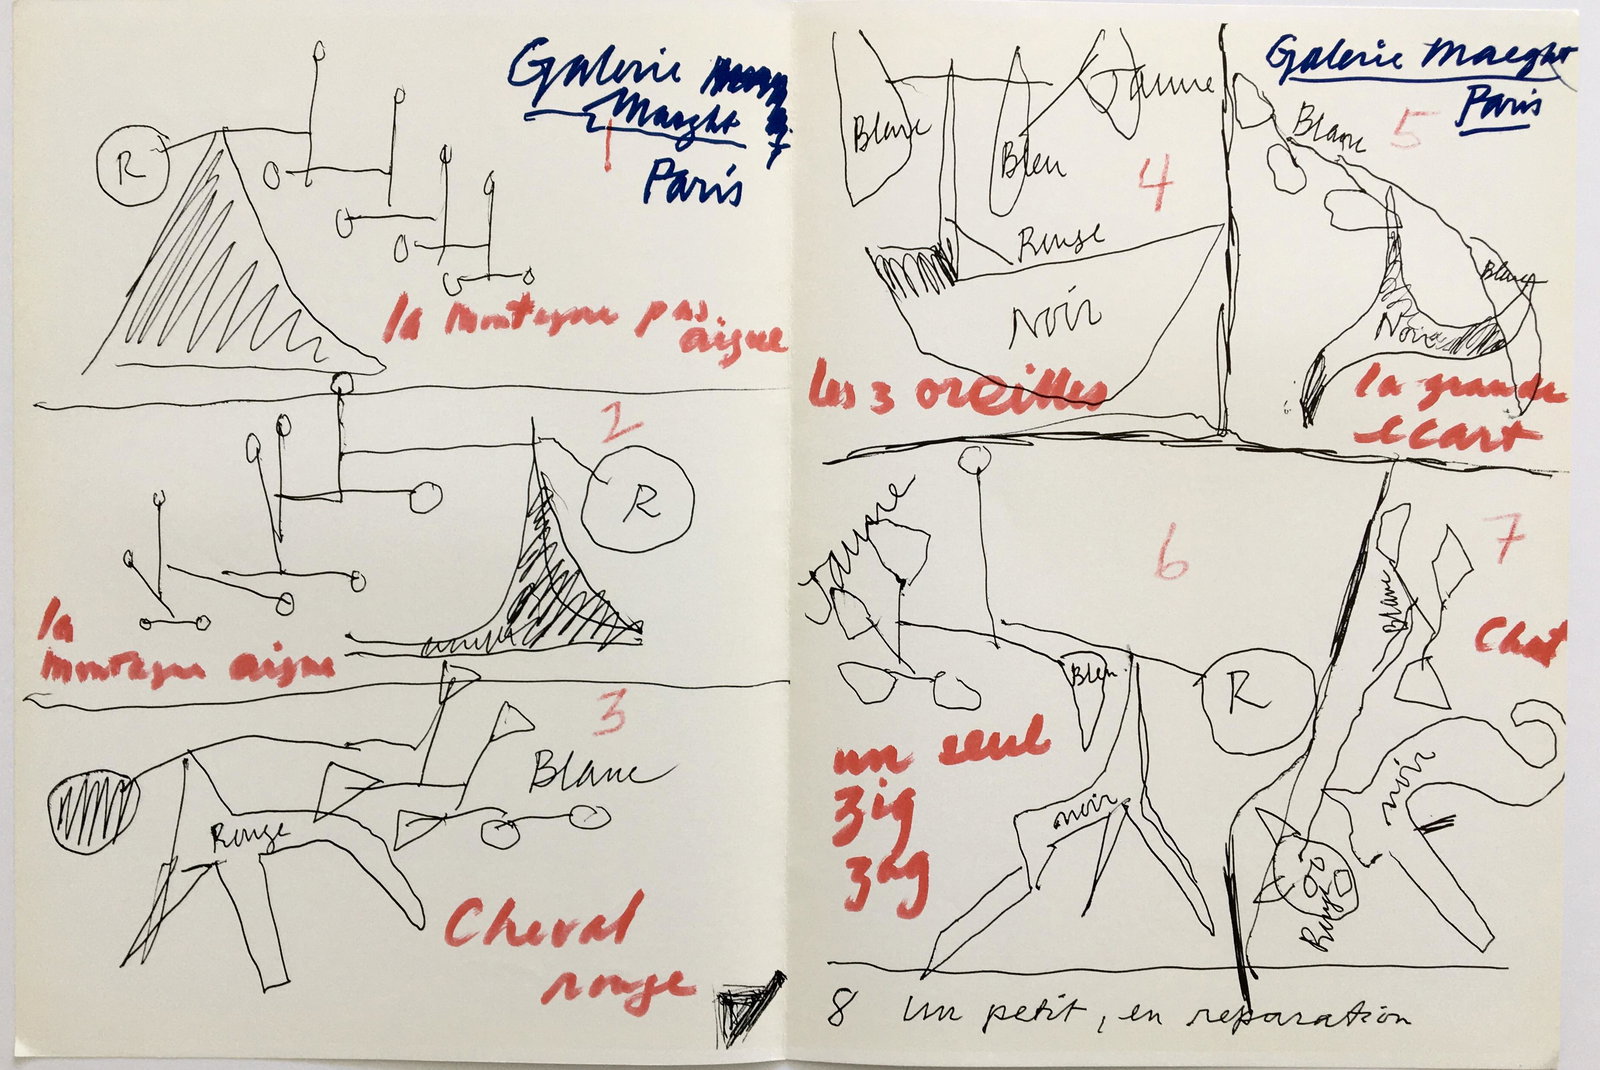 Galerie
Maeght
Paris
1
R
la montagne pas
aigue
2
R
la
montagne aigue
3
Blanc
Rouge
Cheval
rouge
Galerie Maeght
Paris
4
Blanc
Bleu
Jaune
Rouge
Noir
les 3 oreilles
5
Blanc
Blanc
Noir
la grande
ecart
6
Jaune
Bleu
R
noir
un seul
zig
zag
7
Blanc
Chat
noir
Rouge
8 un petit, en reparation